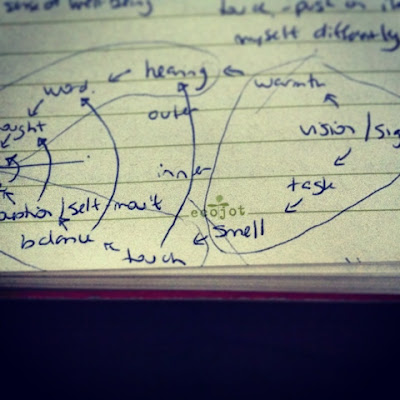 sense of well-being
touch - push on
myself differently
word hearing
warmth
ought
outer
vision / sig
inner
task
ecojot
/ self mov't
smell
balance
touch